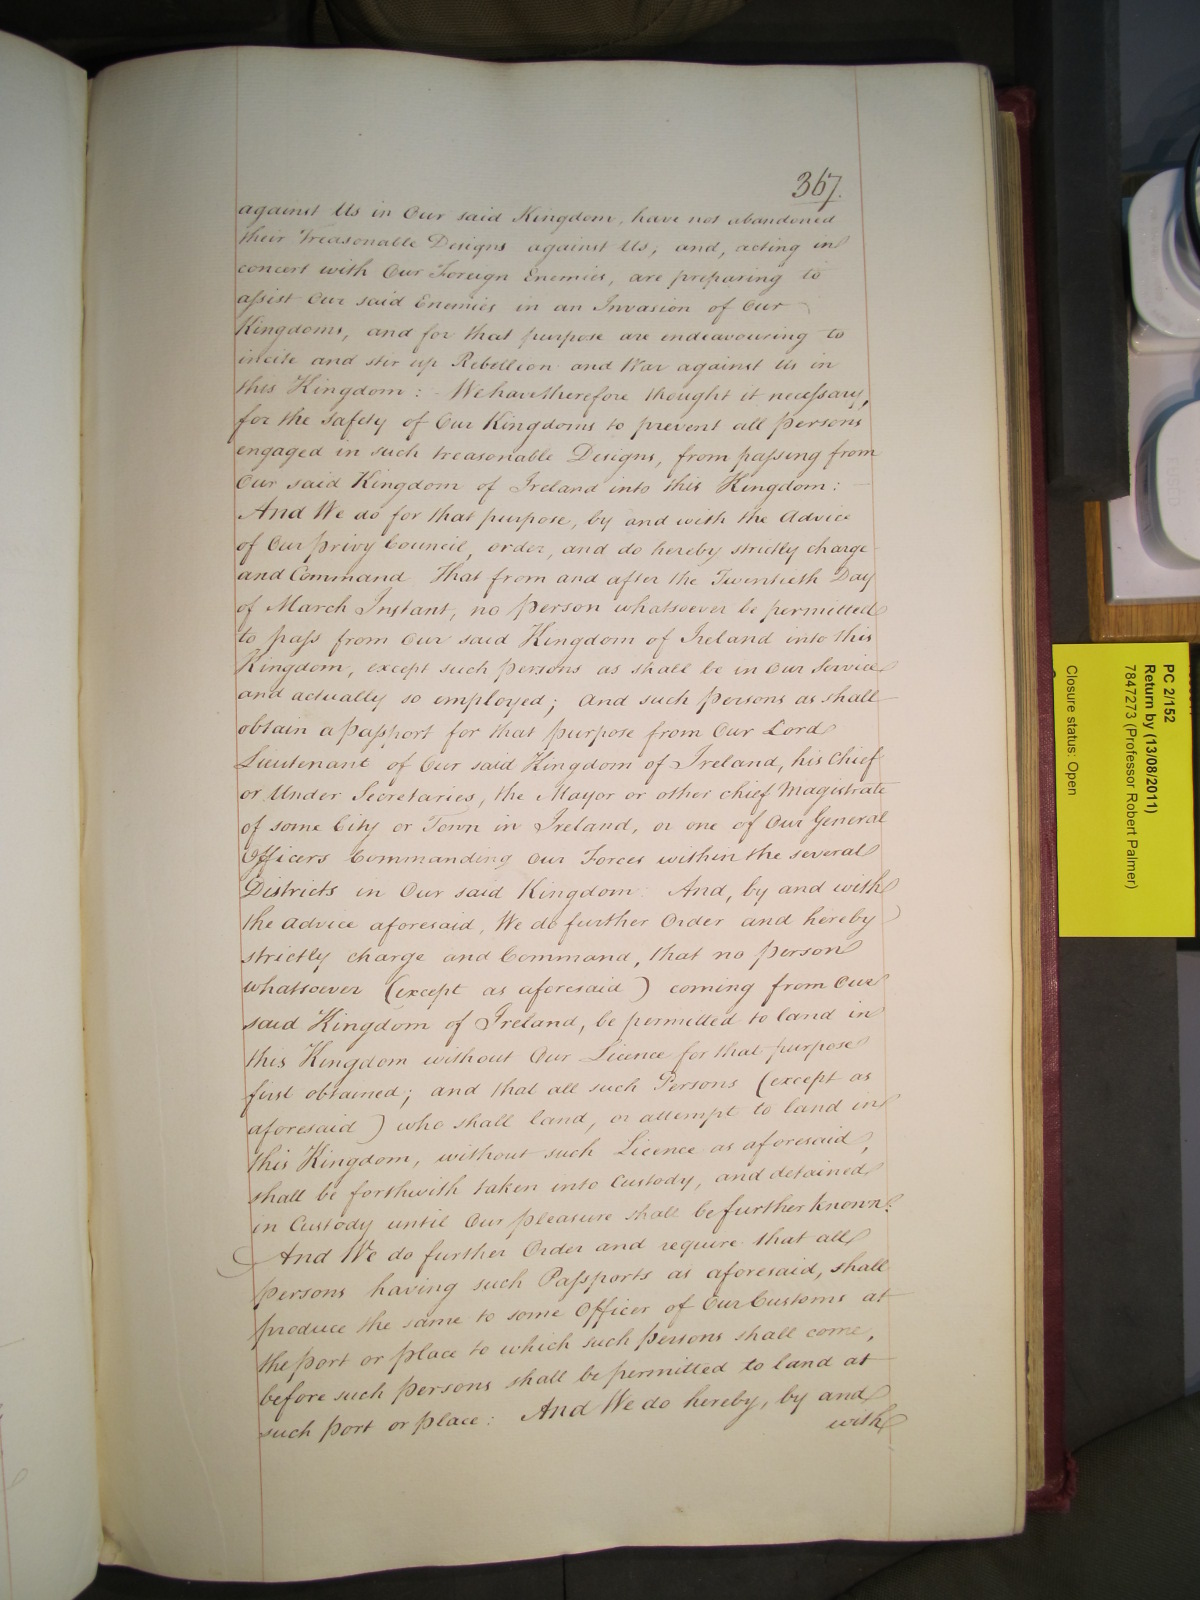 367.
against Us in Our said Kingdom, have not abandoned
their Treasonable Designs against Us, and, acting in
concert with Our Foreign Enemies, are preparing to
assist Our said Enemies in an Invasion of Our
Kingdoms, and for that purpose are endeavouring to
incite and stir up Rebellion and War against Us in
this Kingdom: We have therefore thought it necessary,
for the safety of Our Kingdoms to prevent all Persons
engaged in such treasonable Designs, from passing from
Our said Kingdom of Ireland into this Kingdom:
And We do for that purpose, by and with the Advice
of Our Privy Council, order, and do hereby strictly charge
and Command That from and after the Twentieth Day
of March Instant, no Person whatsoever be permitted
to pass from Our said Kingdom of Ireland into this
Kingdom, except such Persons as shall be in Our Service
and actually so employed; and such Persons as shall
obtain a Passport for that purpose from Our Lord
Lieutenant of Our said Kingdom of Ireland, his Chief
or Under Secretaries, the Mayor or other chief Magistrate
of some City or Town in Ireland, or one of Our General
Officers Commanding Our Forces within the several
Districts in Our said Kingdom: And, by and with
the Advice aforesaid, We do further Order and hereby
strictly charge and Command, that no Person
whatsoever (except as aforesaid) coming from Our
said Kingdom of Ireland, be permitted to land in
this Kingdom without Our Licence for that purpose
first obtained; and that all such Persons (except as
aforesaid) who shall land, or attempt to land in
this Kingdom, without such Licence as aforesaid,
shall be forthwith taken into Custody, and detained
in Custody until Our pleasure shall be further known:
And We do further Order and require that all
Persons having such Passports as aforesaid, shall
produce the same to some Officer of Our Customs at
the Port or place to which such Persons shall come,
before such Persons shall be permitted to land at
such Port or place: And We do hereby, by and
with
PC 2/152
Return by (13/08/2011)
7847273 (Professor Robert Palmer)
Closure status: Open